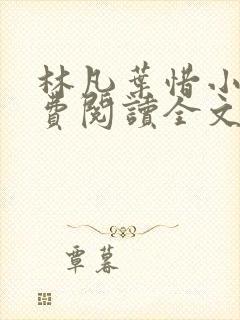 林凡葉惜小
費閱讀全文
覃暮